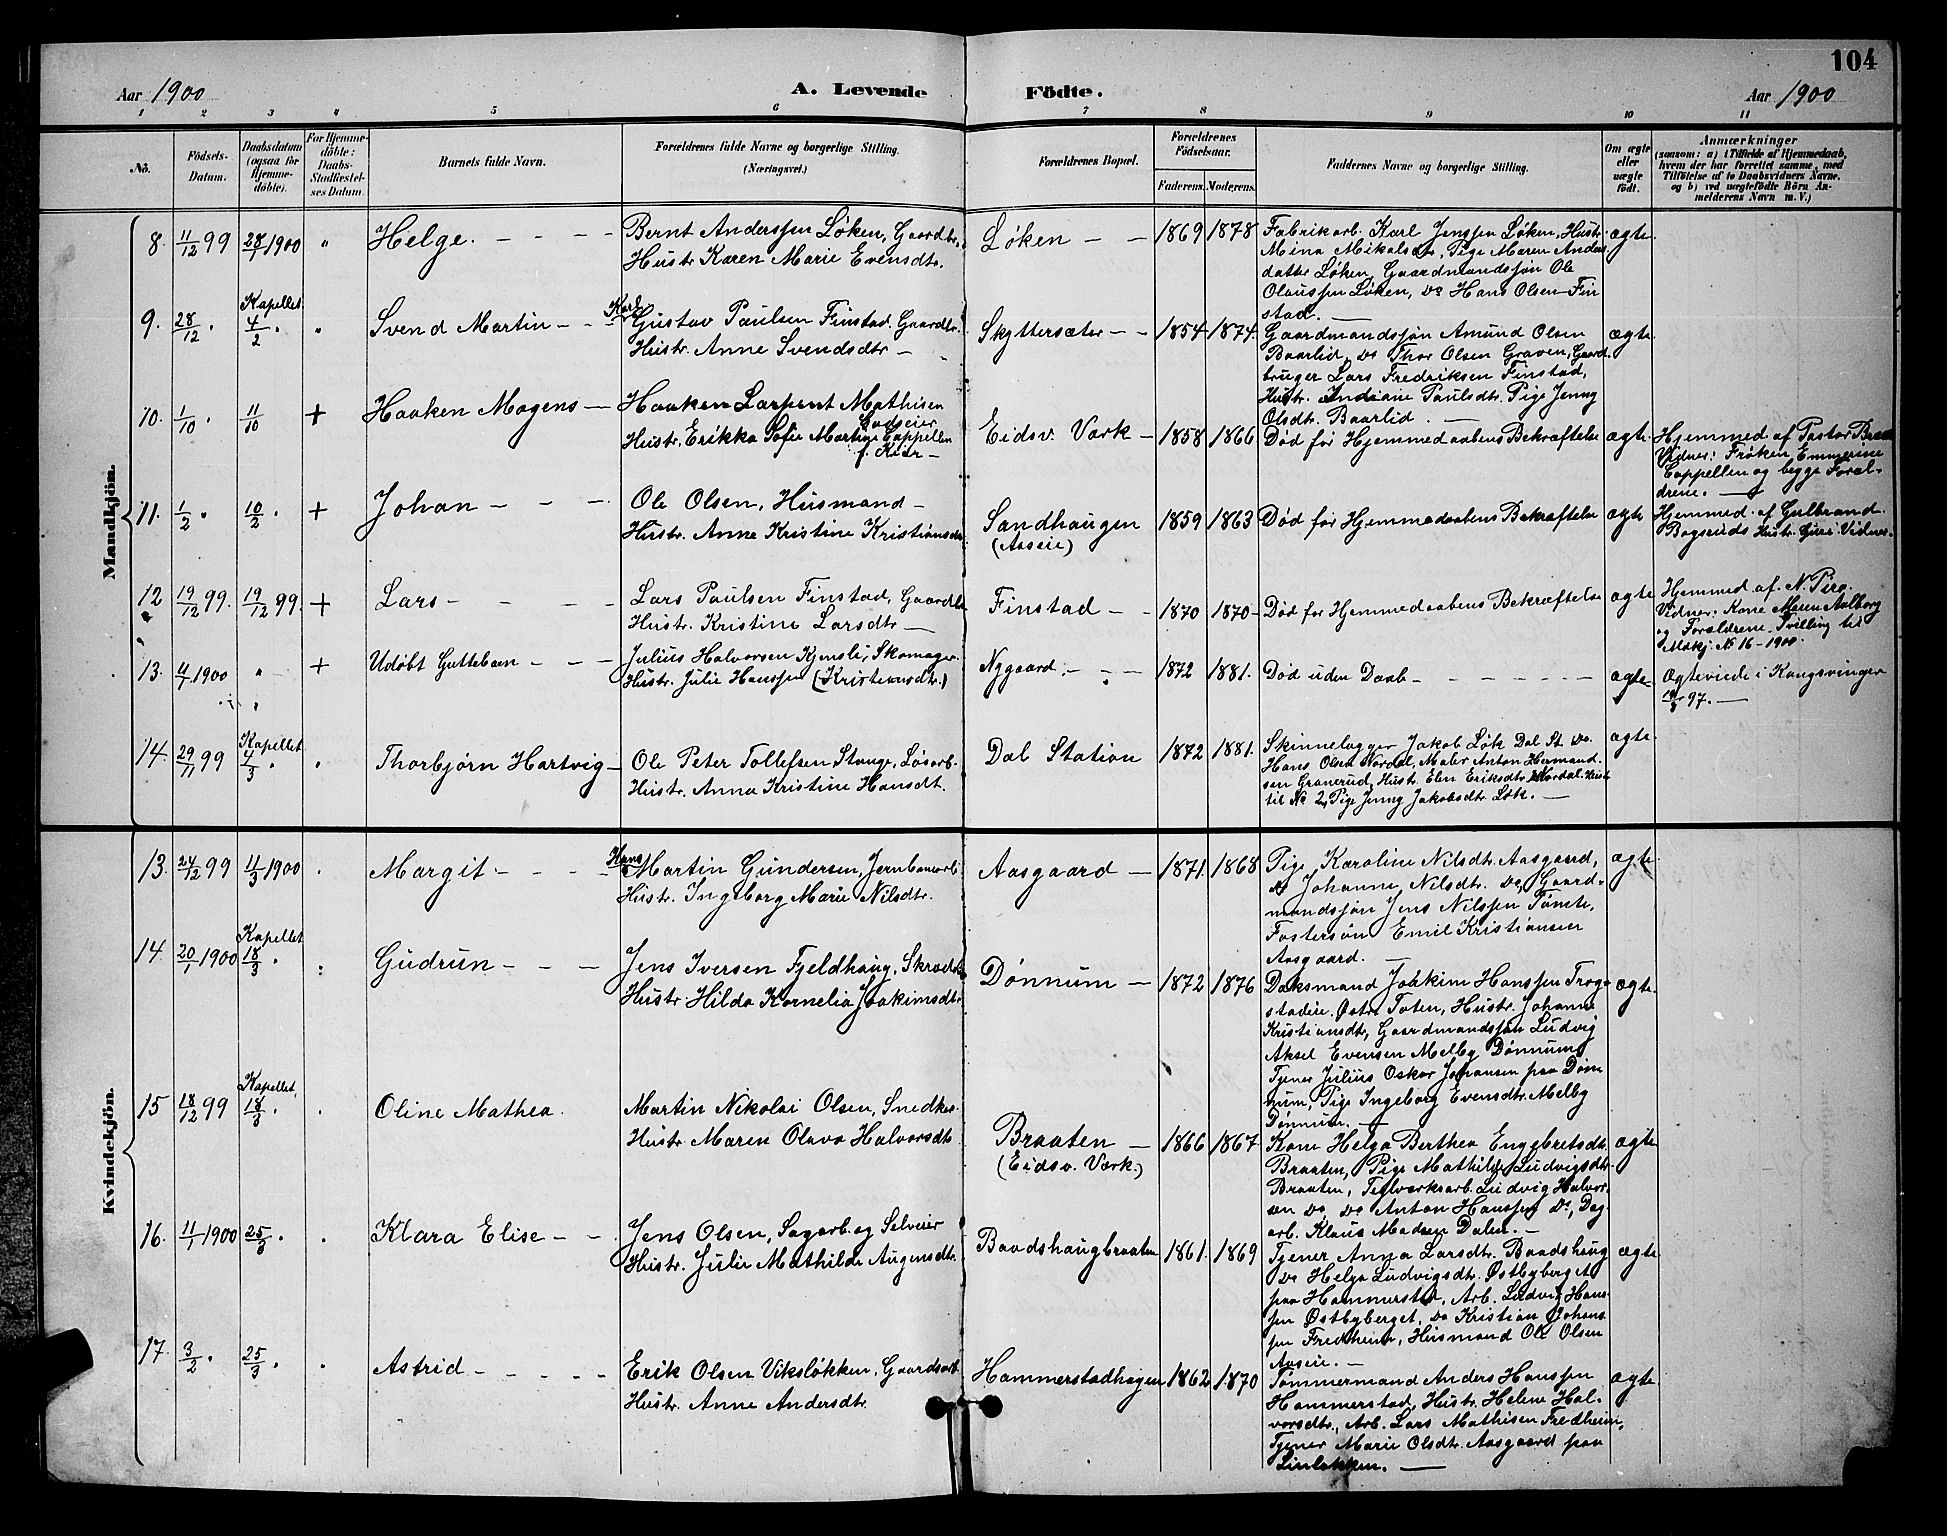 104
Aar 1900
A. Levende
Födte.
Aar 1900
1 2 3 4 5 6 7 8 9 10 11
No.
Födsels-
Datum.
Daabsdatum
(ogsaa for
Hjemme-
döbte).
For Hjemme-
döbte:
Daabs-
Stadfæstel-
ses Datum.
Barnets fulde Navn.
Forældrenes fulde Navne og borgerlige Stilling.
(Næringsvei.)
Forældrenes Bopæl.
Forældrenes
Födselsaar.
Faderens. Moderens.
Faddernes Navne og borgerlige Stilling.
Om ægte
eller
uægte
födt.
Anmærkninger
(saasom: a) i Tilfælde af Hjemmedaab,
hvem der har forrettet samme, med
Tilföielse af to Daabsvidners Navne,
og b) ved uægtefödte Börn An-
melderens Navn m. V.)
Mandkjön.
8. 11/12 99 28/1 1900 " Helge. - - - -
Bernt Anderssen Løken, Gaardbr.
Hustr. Karen Marie Evensdtr.
Løken - - 1869 1878
Fabrikarb. Karl Jenssen Løken, Hustr.
Mina Mikalsdtr, Pige Maren Anders
datter Løken, Gaardmandssøn Ole
Olaussen Løken, Do Hans Olsen Fin
stad. -
ægte.
9. 28/12 . Kapellet 4/2 . " Svend Martin - -
Karl
Gustav Paulsen Finstad. Gaardbr.
Hustr. Anne Svendsdtr -
Skyttersæter - - 1854 1874.
Gaardmandssøn Amund Olsen
Baarlid, Do Thor Olsen Graven, Gaard
bruger Lars Fredriksen Finstad,
Hustr. Indiane Paulsdtr. Pige Jenny
Olsdtr. Baarlid. -
ægte.
10. 1/10 . 11/10 + Haaken Magens -
Haaken Larpent Mathisen
Godseier
Hustr. Erikka Sofie Martine Cappellen
f. Kiær -
Eidsv. Værk - 1858 1866
Død før Hjemmedaabens Bekræftelse
ægte.
Hjemmed af Pastor
Vidner: Frøken Emmerine
Cappellen og begge Foræl-
drene. -
11. 1/2 . 10/2 . + Johan - - -
Ole Olsen, Husmand -
Hustr. Anne Kristine Kristiansdtr
Sandhaugen
(Aaseie)
1859 1863
Død før Hjemmedaabens Bekræftelse
ægte
Hjemmed. af Gulbrand
Bogsruds Hustr. Vidner.
12 19/12 99. 19/12 99. + Lars - - - -
Lars Paulsen Finstad, Gaardbr
Hustr. Kristine Larsdtr -
Finstad - - 1870 1870 -
Død før Hjemmedaabens Bekræftelse
ægte
Hjemmed af. N. Pero.
Vidner: Kone Maren Aalborg
og Forældrene. Tvilling til
Mdkj. No 16 - 1900.
13. 4/7 1900 " + Udøbt Guttebarn - - -
Julius Halvorsen Kjensli, Skomager.
Hustr. Julie Hanssen (Kristiansdtr.)
Nygaard. - - - 1872 1881.
Død uden Daab - - - - - - -
ægte
Ægteviede i Kongsvinger
97. -
14. 29/11 99 Kapellet 4/3 . " Thorbjørn Hartvig -
Ole Peter Tollefsen Stange, Løsarb.
Hustr. Anna Kristine Hansdt.
Dal Station 1872 1881.
Skinnelægger Jakob Løk Dal St. Do
Hans Olsen Nordal, Maler Anton Hermand.
sen Granerud, Hustr. Elen Eriksdtr Nordal. Hustr
til No 2, Pige Jenny Jakobsdtr. Løk. -
ægte.
Kvindekjön.
13. 24/12 99 11/3 1900 . Margit - - - -
Hans
Martin Gundersen, Jernbanearb.
Hustr. Ingeborg Marie Nilsdtr.
Aasgaard - 1871. 1868
Pige Karoline Nilsdtr. Aasgaard,
Do Johanne Nilsdtr. Do, Gaard-
mandssøn Jens Nilssen Tømte,
Fostersøn Emil Kristiansen
Aasgaard. -
ægte.
14. 20/1 1900 Kapellet 18/3 . : Gudrun - - -
Jens Iversen Fjeldhaug, Skrædder
Hustr. Hilda Kornelia Joakimsdtr.
Dønnum - 1872 1876
Daksmand Joakim Hanssen Trog-
stadeie. Østre Toten, Hustr. Johanne
Kristiansdtr, Gaardmandssøn Ludvig
Aksel Evensen Melby Dønnum,
Tjener Julius Oskar Johansen paa Døn
num, Pige Ingeborg Evensdtr. Melby
Dønnum. -
ægte.
15 18/12 99 Kapellet 18/3 . . Oline Mathea.
Martin Nikolai Olsen, Snedker.
Hustr. Maren Olava Halvorsdtr.
Braaten -
(Eidsv. Værk.)
1866 1867
Kone Helga Berthea Engebretsdtr.
Braaten, Pige Mathilde Ludvigsdtr.
Braaten, Teglværksarb. Ludvig Halvor-
sen Do, Do Anton Hanssen Do, Dag
arb. Klaus Madsen Dalen. -
ægte
16. 11/1 1900 25/3 . . Klara Elise - -
Jens Olsen, Sagarb. og Selveier
Hustr. Julie Mathilde Augensdtr.
Baadshaugbraaten 1861. 1869
Tjener Anna Larsdtr. Baadshaug
Do Helga Ludvigsdtr. Østbyberget
paa Hammerstad, Arb. Ludvig Hans-
sen Østbyberget, Do Kristian Johans-
sen Fredheim, Husmand Ole Olsen
Aaseie. -
ægte
17. 3/2 . 25/3 . . Astrid - - - - -
Erik Olsen Viksløkken, Gaardsarb.
Hustr. Anne Andersdtr.
Hammerstadhagen 1862 1870
Tømmermand Anders Hanssen
Hammerstad, Hustr. Helene Hal-
vorsdtr., Arb. Lars Mathisen Fredheim,
Tjener Marie Olsdtr. Aasgaard paa
Linløkken. -
ægte